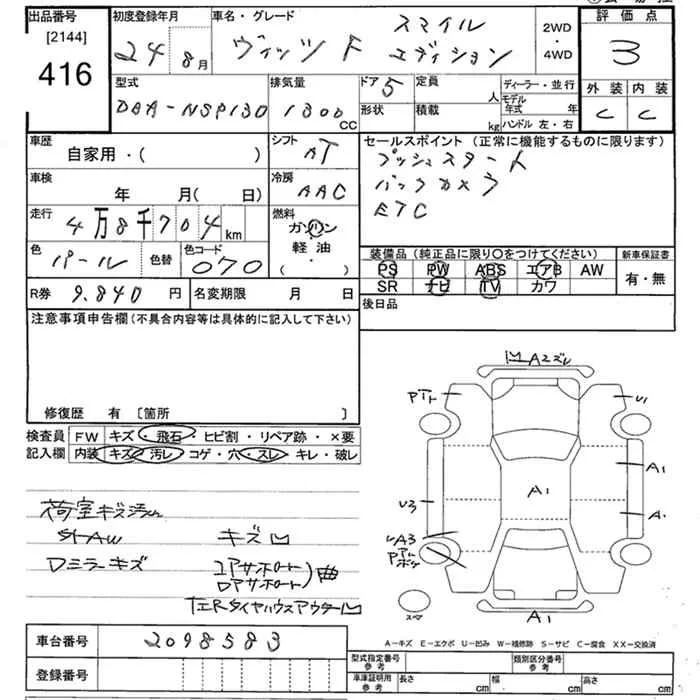 出品番号
[2144]
416
初度登録年月
24 8月
車名・グレード
スマイル
ヴィッツ F エディション
2WD
・
4WD
評価点
3
外装 内装
C C
型式
DBA-NSP130
排気量
1300 CC
ドア 5
形状
定員 人
積載 kg
ディーラー・並行
モデル年式 年
ハンドル 左・右
車歴
自家用・( )
シフト
AT
車検
年 月( 日)
冷房
AAC
走行
4万8千704 km
燃料
ガソリン
軽油
( ・ )
色
パール
色替
色コード
070
R券 9.840 円
名変期限 月 日
セールスポイント (正常に機能するものに限ります)
プッシュスタート
バックカメラ
ETC
装備品 (純正品に限り〇をつけてください)
PS PW ABS エアB AW
SR ナビ TV カワ
新車保証書
有・無
後日品
注意事項申告欄 (不具合内容等は具体的に記入して下さい)
修復歴 有 [箇所 ]
検査員
記入欄
FW キズ・飛石・ヒビ割・リペア跡・×要
内装 キズ・汚レ・コゲ・穴・スレ・キレ・破レ
A2ズレ
U1
A1
A1
U3
A1
荷室キズ汚レ
キズ
Dミラーキズ
コアサポート
曲
A1
A-キズ E-エクボ U-凹み W-補修跡 S-サビ C-腐食 XX-交換済
車台番号 2098583
登録番号
型式指定番号
参考
類別区分番号
参考
車庫証明用
参考
長さ cm
幅 cm
高さ cm